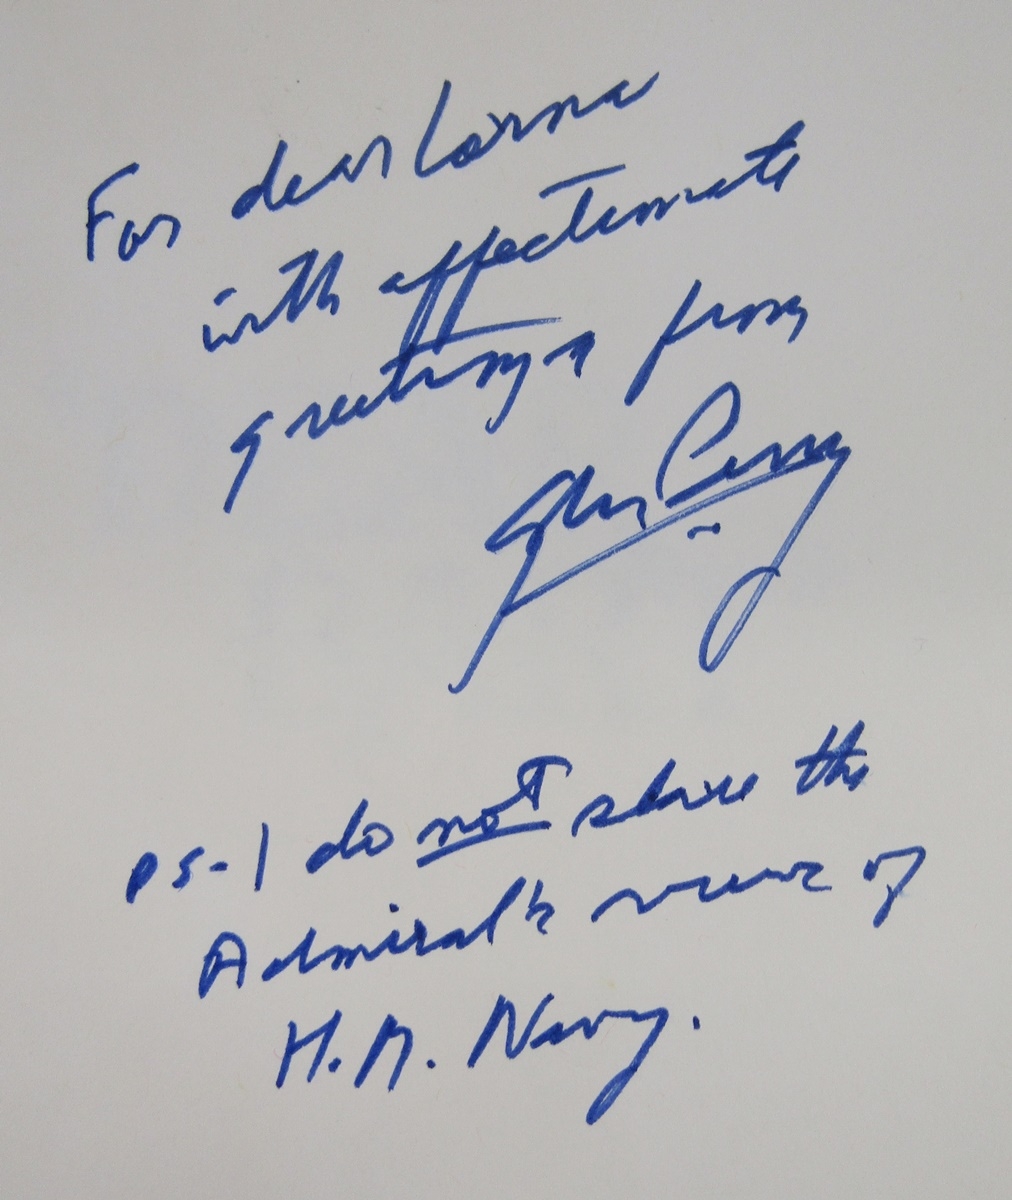 For dear Lorna
with affectionate
greetings from
Perry
PS - I do not share the
Admiral's view of
H.M. Navy.